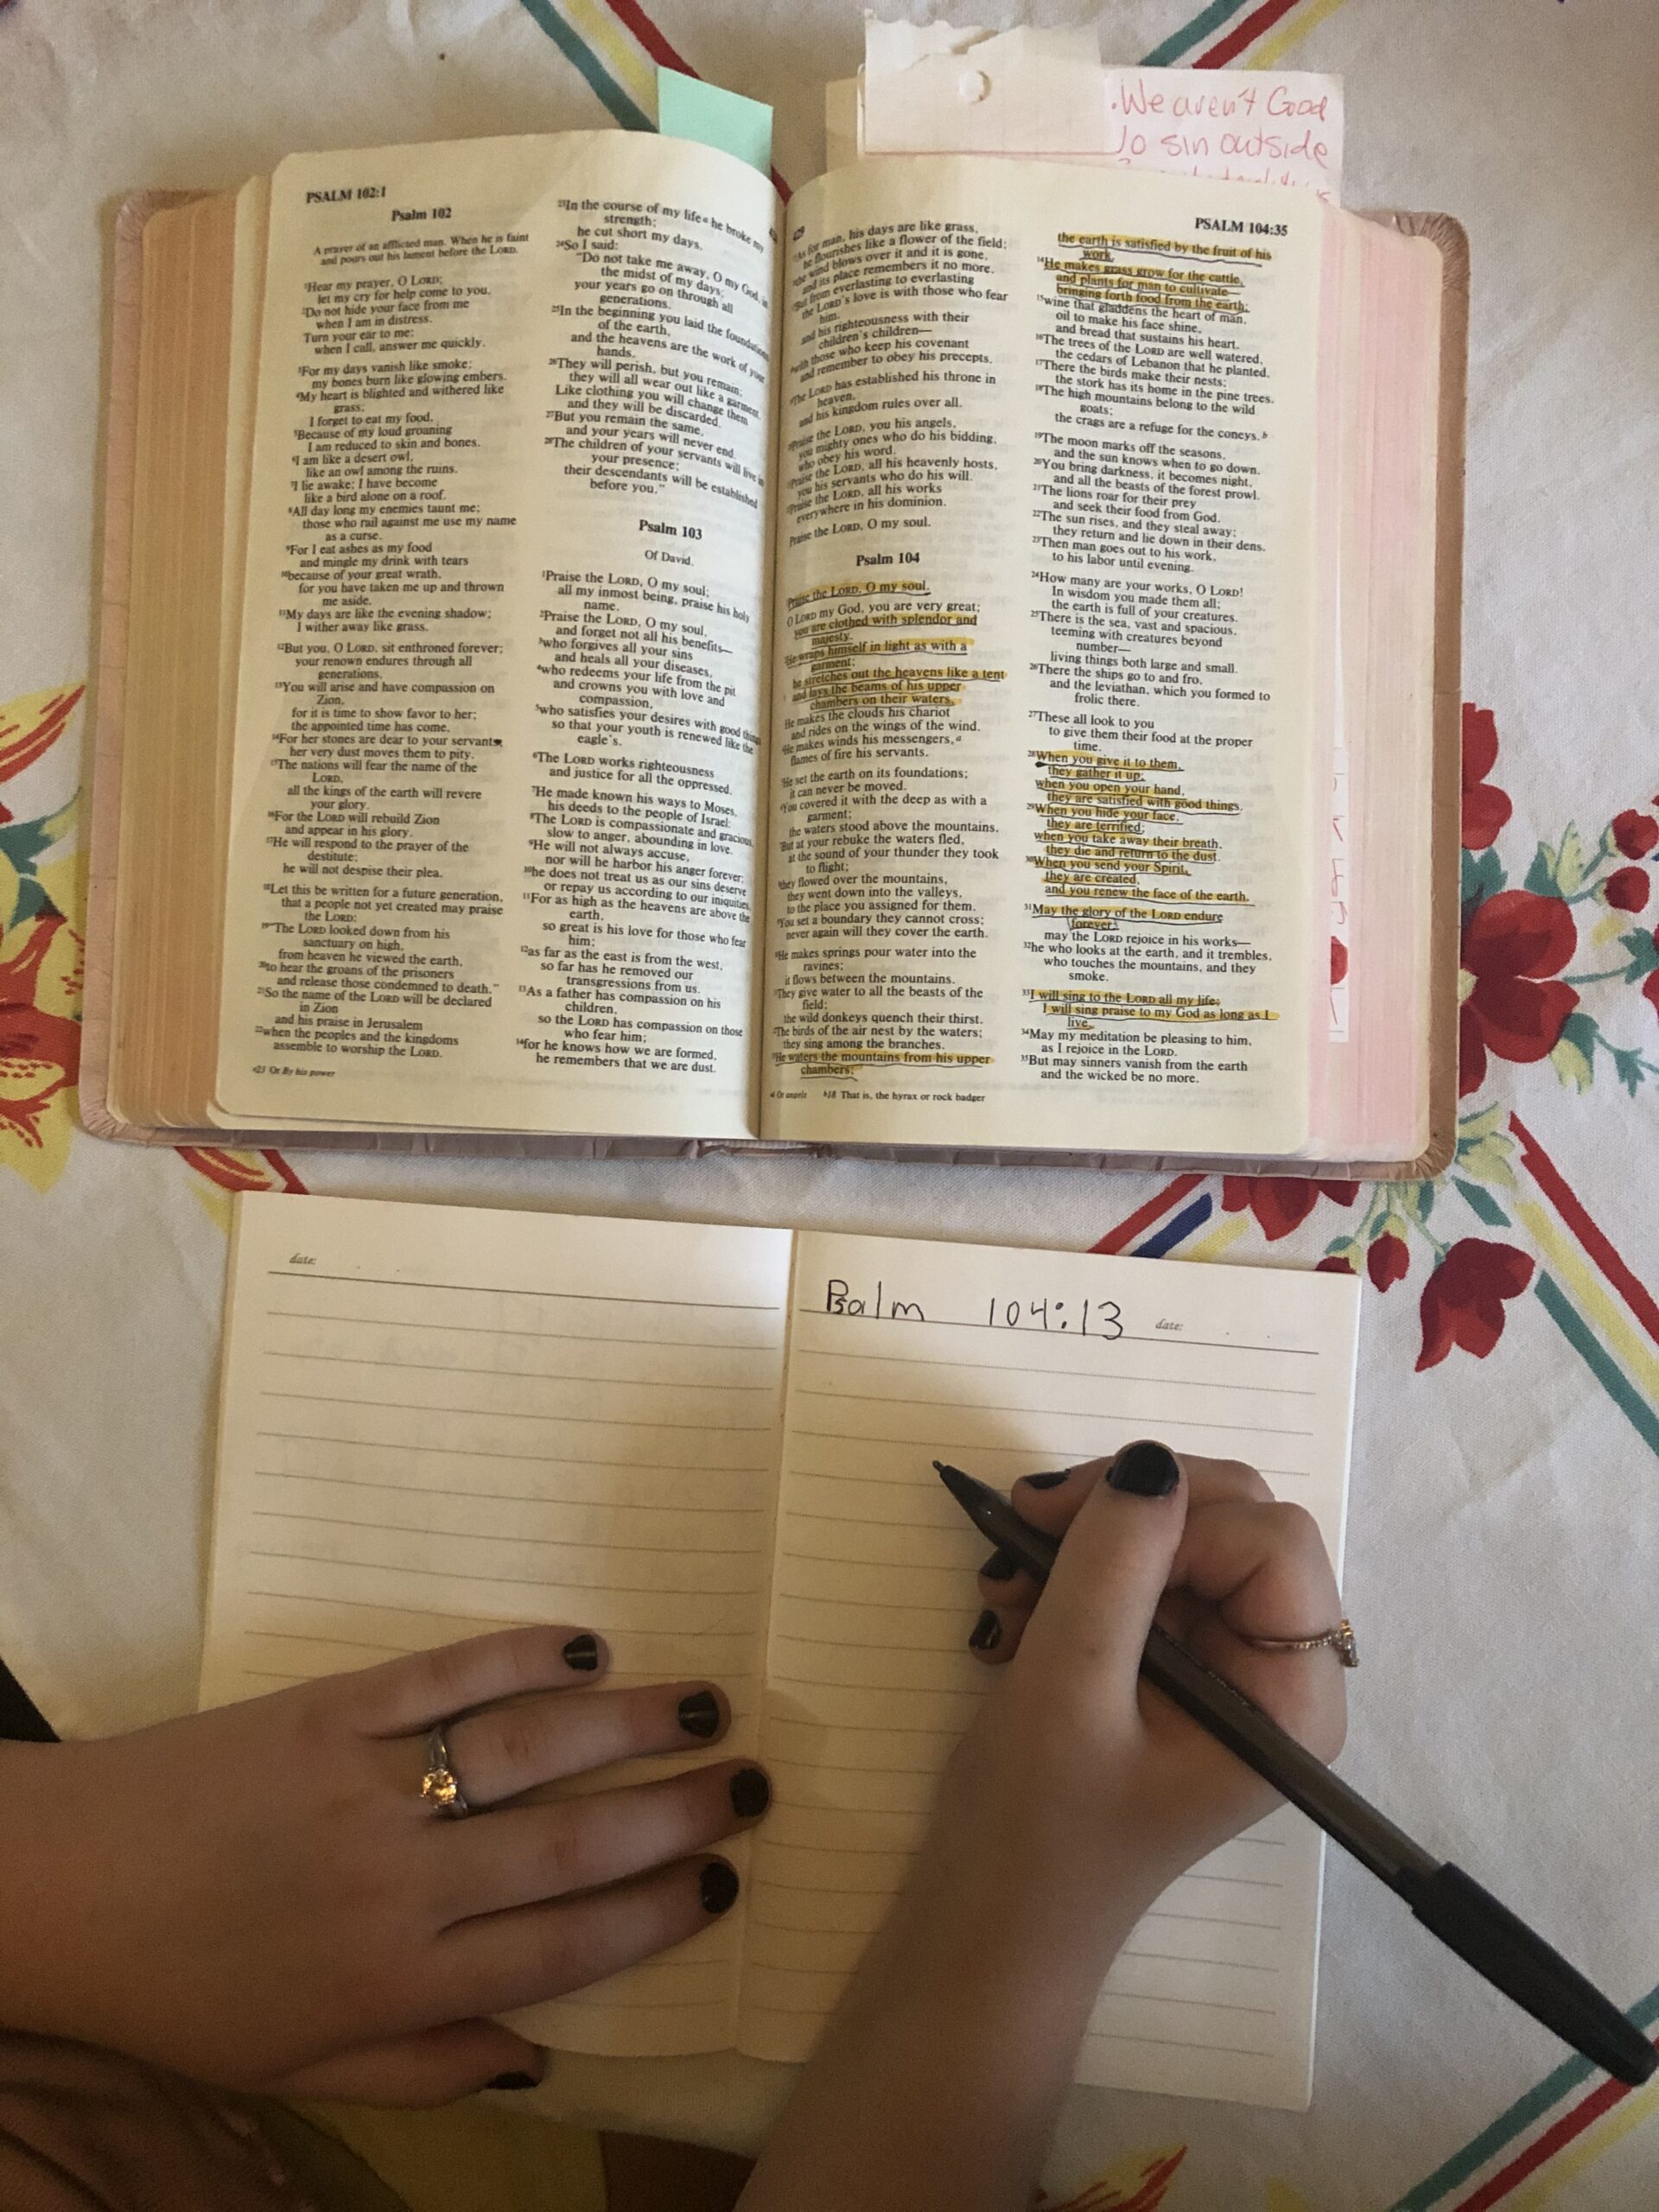 .We aren't Good
sin outside
PSALM 102:1
Psalm 102
A prayer of an afflicted man. When he is faint
and pours out his lament before the LORD.
1Hear my prayer, O LORD;
let my cry for help come to you.
2Do not hide your face from me
when I am in distress.
Turn your ear to me;
when I call, answer me quickly.
3For my days vanish like smoke;
my bones burn like glowing embers.
4My heart is blighted and withered like
grass;
I forget to eat my food.
5Because of my loud groaning
I am reduced to skin and bones.
6I am like a desert owl,
like an owl among the ruins.
7I lie awake; I have become
like a bird alone on a roof.
8All day long my enemies taunt me;
those who rail against me use my name
as a curse.
9For I eat ashes as my food
and mingle my drink with tears
10because of your great wrath,
for you have taken me up and thrown
me aside.
11My days are like the evening shadow;
I wither away like grass.
12But you, O LORD, sit enthroned forever;
your renown endures through all
generations.
13You will arise and have compassion on
Zion,
for it is time to show favor to her;
the appointed time has come.
14For her stones are dear to your servants;
her very dust moves them to pity.
15The nations will fear the name of the
LORD,
all the kings of the earth will revere
your glory.
16For the LORD will rebuild Zion
and appear in his glory.
17He will respond to the prayer of the
destitute;
he will not despise their plea.
18Let this be written for a future generation,
that a people not yet created may praise
the LORD:
19"The LORD looked down from his
sanctuary on high,
from heaven he viewed the earth,
20to hear the groans of the prisoners
and release those condemned to death."
21So the name of the LORD will be declared
in Zion
and his praise in Jerusalem
22when the peoples and the kingdoms
assemble to worship the LORD.
a23 Or By his power
23In the course of my life a he broke my
strength;
he cut short my days.
24So I said:
"Do not take me away, O my God, in
the midst of my days;
your years go on through all
generations.
25In the beginning you laid the foundations
of the earth,
and the heavens are the work of your
hands.
26They will perish, but you remain;
they will all wear out like a garment.
Like clothing you will change them
and they will be discarded.
27But you remain the same,
and your years will never end.
28The children of your servants will live in
your presence;
their descendants will be established
before you."
Psalm 103
Of David.
1Praise the LORD, O my soul;
all my inmost being, praise his holy
name.
2Praise the LORD, O my soul,
and forget not all his benefits—
3who forgives all your sins
and heals all your diseases,
4who redeems your life from the pit
and crowns you with love and
compassion,
5who satisfies your desires with good things
so that your youth is renewed like the
eagle's.
6The LORD works righteousness
and justice for all the oppressed.
7He made known his ways to Moses,
his deeds to the people of Israel:
8The LORD is compassionate and gracious,
slow to anger, abounding in love.
9He will not always accuse,
nor will he harbor his anger forever;
10he does not treat us as our sins deserve
or repay us according to our iniquities.
11For as high as the heavens are above the
earth,
so great is his love for those who fear
him;
12as far as the east is from the west,
so far has he removed our
transgressions from us.
13As a father has compassion on his
children,
so the LORD has compassion on those
who fear him;
14for he knows how we are formed,
he remembers that we are dust.
429
PSALM 104:35
As for man, his days are like grass,
he flourishes like a flower of the field;
the wind blows over it and it is gone,
and its place remembers it no more.
But from everlasting to everlasting
the LORD's love is with those who fear
him,
and his righteousness with their
children's children—
with those who keep his covenant
and remember to obey his precepts.
The LORD has established his throne in
heaven,
and his kingdom rules over all.
Praise the LORD, you his angels,
you mighty ones who do his bidding,
who obey his word.
Praise the LORD, all his heavenly hosts,
you his servants who do his will.
Praise the LORD, all his works
everywhere in his dominion.
Praise the LORD, O my soul.
Psalm 104
Praise the LORD, O my soul.
O LORD my God, you are very great;
you are clothed with splendor and
majesty.
He wraps himself in light as with a
garment;
he stretches out the heavens like a tent
and lays the beams of his upper
chambers on their waters.
He makes the clouds his chariot
and rides on the wings of the wind.
He makes winds his messengers, a
flames of fire his servants.
He set the earth on its foundations;
it can never be moved.
You covered it with the deep as with a
garment;
the waters stood above the mountains.
But at your rebuke the waters fled,
at the sound of your thunder they took
to flight;
they flowed over the mountains,
they went down into the valleys,
to the place you assigned for them.
You set a boundary they cannot cross;
never again will they cover the earth.
He makes springs pour water into the
ravines;
it flows between the mountains.
They give water to all the beasts of the
field;
the wild donkeys quench their thirst.
The birds of the air nest by the waters;
they sing among the branches.
He waters the mountains from his upper
chambers;
a4 Or angels b18 That is, the hyrax or rock badger
the earth is satisfied by the fruit of his
work.
14He makes grass grow for the cattle,
and plants for man to cultivate—
bringing forth food from the earth:
15wine that gladdens the heart of man,
oil to make his face shine,
and bread that sustains his heart.
16The trees of the LORD are well watered,
the cedars of Lebanon that he planted.
17There the birds make their nests;
the stork has its home in the pine trees.
18The high mountains belong to the wild
goats;
the crags are a refuge for the coneys. b
19The moon marks off the seasons,
and the sun knows when to go down.
20You bring darkness, it becomes night,
and all the beasts of the forest prowl.
21The lions roar for their prey
and seek their food from God.
22The sun rises, and they steal away;
they return and lie down in their dens.
23Then man goes out to his work,
to his labor until evening.
24How many are your works, O LORD!
In wisdom you made them all;
the earth is full of your creatures.
25There is the sea, vast and spacious,
teeming with creatures beyond
number—
living things both large and small.
26There the ships go to and fro,
and the leviathan, which you formed to
frolic there.
27These all look to you
to give them their food at the proper
time.
28When you give it to them,
they gather it up;
when you open your hand,
they are satisfied with good things.
29When you hide your face,
they are terrified;
when you take away their breath,
they die and return to the dust.
30When you send your Spirit,
they are created,
and you renew the face of the earth.
31May the glory of the LORD endure
forever;
may the LORD rejoice in his works—
32he who looks at the earth, and it trembles,
who touches the mountains, and they
smoke.
33I will sing to the LORD all my life;
I will sing praise to my God as long as I
live.
34May my meditation be pleasing to him,
as I rejoice in the LORD.
35But may sinners vanish from the earth
and the wicked be no more.
date:
Psalm 104:13 date: